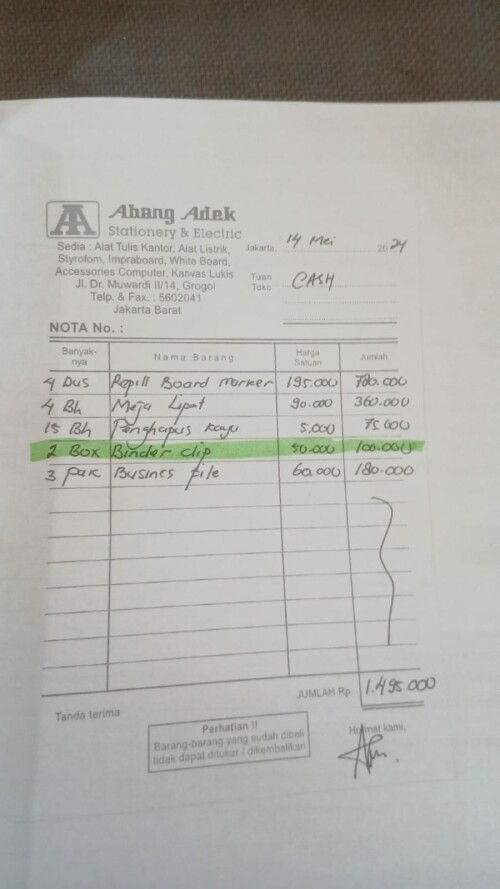 AA Abang Adek
Stationery & Electric
Sedia : Alat Tulis Kantor, Alat Listrik,
Styrofom, Impraboard, White Board,
Accessories Computer, Kanvas Lukis
Jl. Dr. Muwardi II/14, Grogol
Telp. & Fax. : 5602041
Jakarta Barat
Jakarta, 14 Mei 2024
Tuan
Toko CASH
NOTA No. :
Banyak-nya Nama Barang Harga Satuan Jumlah
4 Dus Repill Board marker 195.000 780.000
4 Bh Meja Lipat 90.000 360.000
15 Bh Penghapus kayu 5.000 75.000
2 Box Binder clip 50.000 100.000
3 pak Busines file 60.000 180.000
JUMLAH Rp. 1.495.000
Tanda terima
Perhatian !!
Barang-barang yang sudah dibeli
tidak dapat ditukar / dikembalikan
Hormat kami,